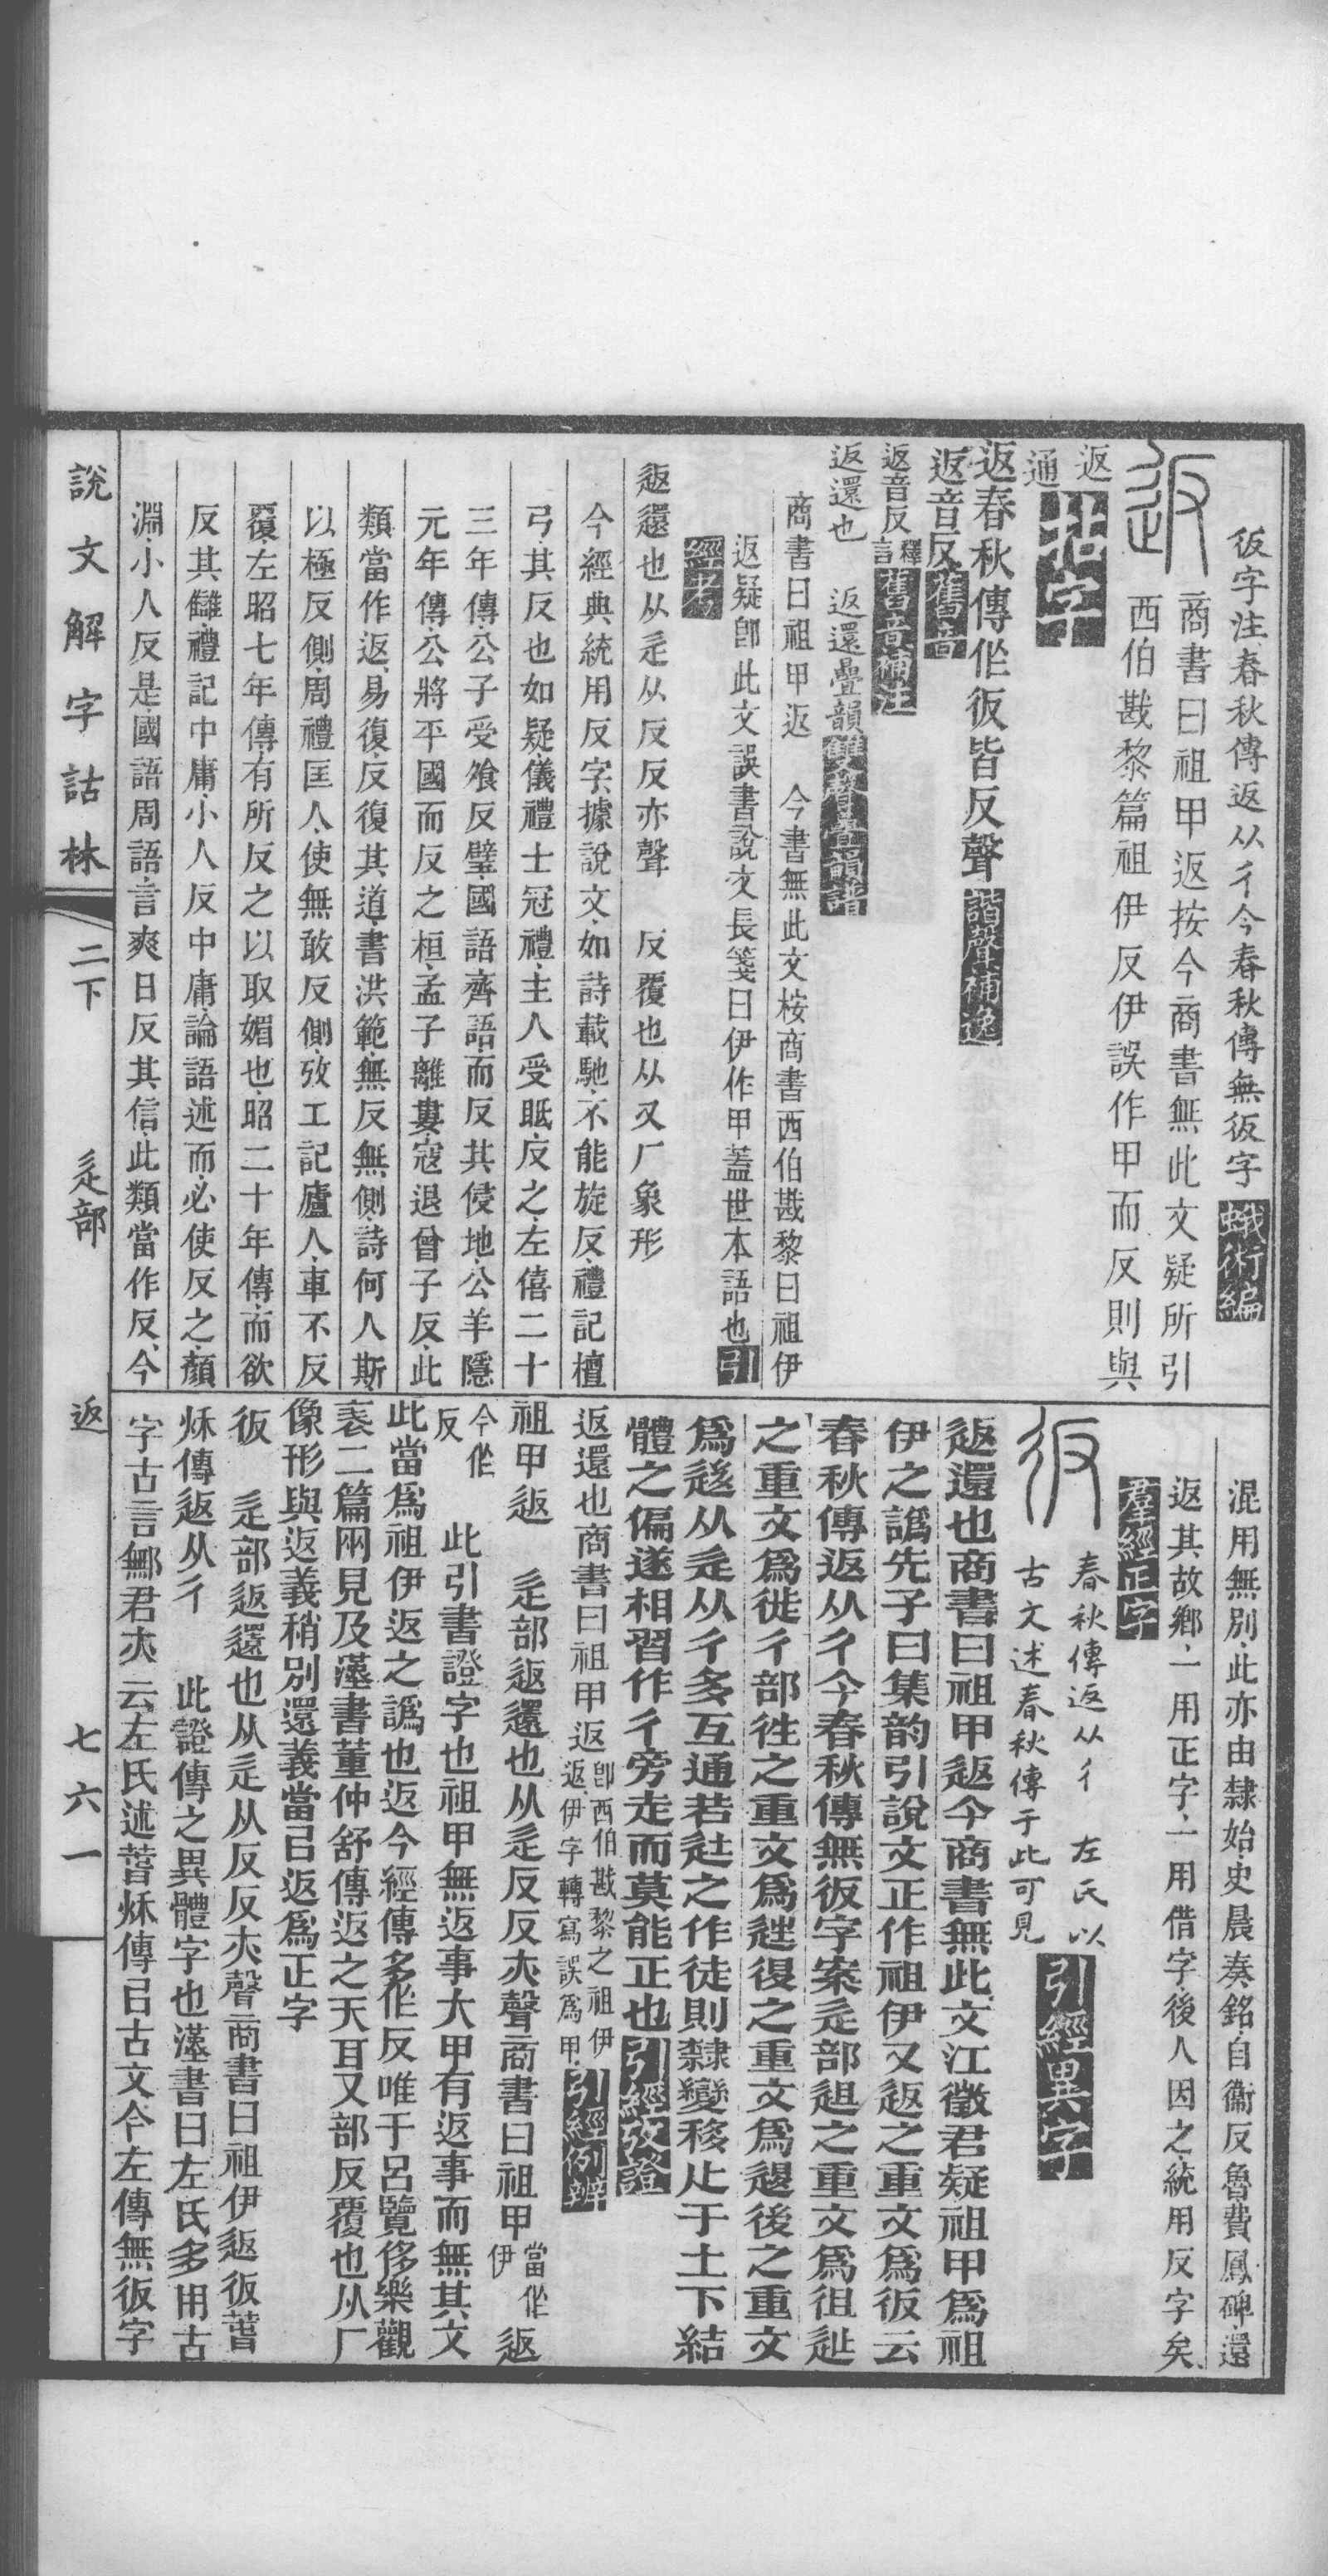 彶字注春秋傳返从彳今春秋傳無彶字蛾術編
商書曰祖甲返按今商書無此文疑所引
西伯戡黎篇祖伊反伊誤作甲而反則與
返
通
返春秋傳作彶皆反聲諧聲補逸
返音反舊音
返音反釋言舊音補注
返還也 返還疊韻雙聲疊韻譜
商書曰祖甲返 今書無此文桉商書西伯戡黎曰祖伊
返疑卽此文誤書說文長箋曰伊作甲蓋世本語也引
經考
返還也从辵从反反亦聲 反覆也从又厂象形
今經典統用反字據說文如詩載馳不能旋反禮記檀
弓其反也如疑儀禮士冠禮主人受眡反之左僖二十
三年傳公子受飧反璧國語齊語而反其侵地公羊隱
元年傳公將平國而反之桓孟子離婁寇退曾子反此
類當作返易復反復其道書洪範無反無側詩何人斯
以極反側周禮匡人使無敢反側攷工記廬人車不反
覆左昭七年傳有所反之以取媚也昭二十年傳而欲
反其讎禮記中庸小人反中庸論語述而必使反之顏
淵小人反是國語周語言爽日反其信此類當作反今
混用無別此亦由隸始史晨奏銘自衞反魯費鳳碑還
返其故鄉一用正字一用借字後人因之統用反字矣
羣經正字
彶 春秋傳返从彳 左氏以
古文述春秋傳于此可見 引經異字
返還也商書曰祖甲返今商書無此文江徵君疑祖甲爲祖
伊之譌先子曰集韵引說文正作祖伊又返之重文爲彶云
春秋傳返从彳今春秋傳無彶字案辵部退之重文爲徂𨑭
之重文爲徙彳部往之重文爲𨓹復之重文爲𨓤後之重文
爲𨒥从辵从彳多互通若𨑒之作徒則隸變移止于土下結
體之偏遂相習作彳旁走而莫能正也引經攷證
返還也商書曰祖甲返卽西伯戡黎之祖伊返伊字轉寫誤爲甲引經例辨
祖甲返 辵部返還也从辵反反亦聲商書曰祖甲當作伊返
今作反 此引書證字也祖甲無返事大甲有返事而無其文
此當爲祖伊返之譌也返今經傳多作反唯于呂覽侈樂觀
表二篇兩見及漢書董仲舒傳返之天耳又部反覆也从厂
像形與返義稍別還義當㠯返爲正字
彶 辵部返還也从辵从反反亦聲商書曰祖伊返彶萅
秌傳返从彳 此證傳之異體字也漢書曰左氏多用古
字古言鄦君亦云左氏述萅秌傳㠯古文今左傳無彶字
說文解字詁林 二下 辵部 返 七六一